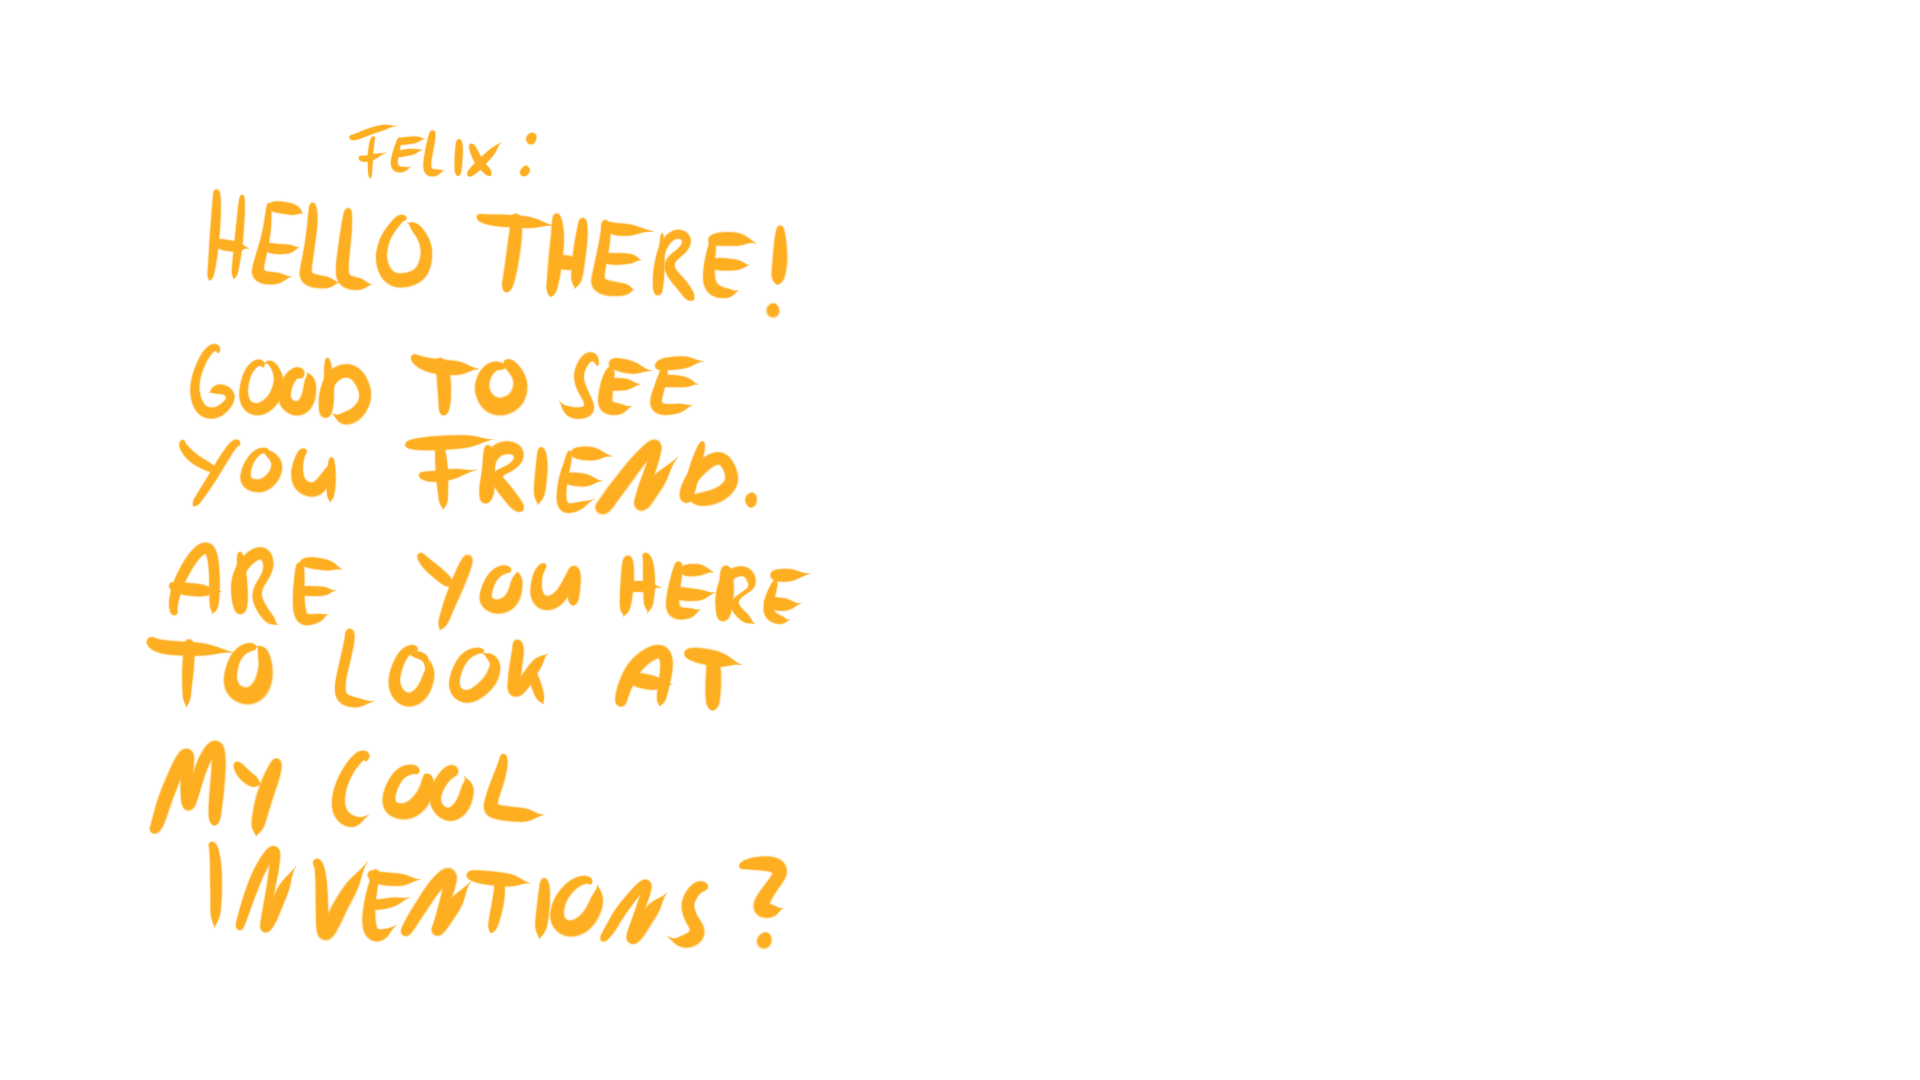 FELIX:
HELLO THERE!
GOOD TO SEE
YOU FRIEND.
ARE YOU HERE
TO LOOK AT
MY COOL
INVENTIONS?